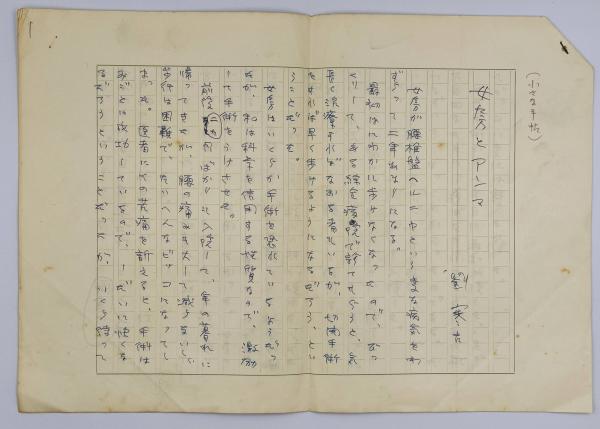 (小さな手帖)
女房とアンマ
劉寒吉
女房が腰椎盤ヘルニヤという変な病気をわ
ずらって二年あまりになる。
最初はにわかに歩けなくなったので、おっ
くりして、ある綜合病院で診てもらうと、気
長く治療すればなおる者もいるが、切開手術
をすれば早く歩けるようになるだろう、とい
うことだった。
女房はいくらか手術を恐れているようだっ
たが、私は科学を信用する性質なので、激励
して手術をうけさせた。
前後二カ月ばかり入院して、年の暮れに
帰ってきたが、腰の痛みは大して減らないし、
歩行は困難で、たいへんなビッコになってし
まった。医者にその苦痛を訴えると、手術は
みごとに成功しているので、しだいに快くな
るだろうということだったが、いくら待って